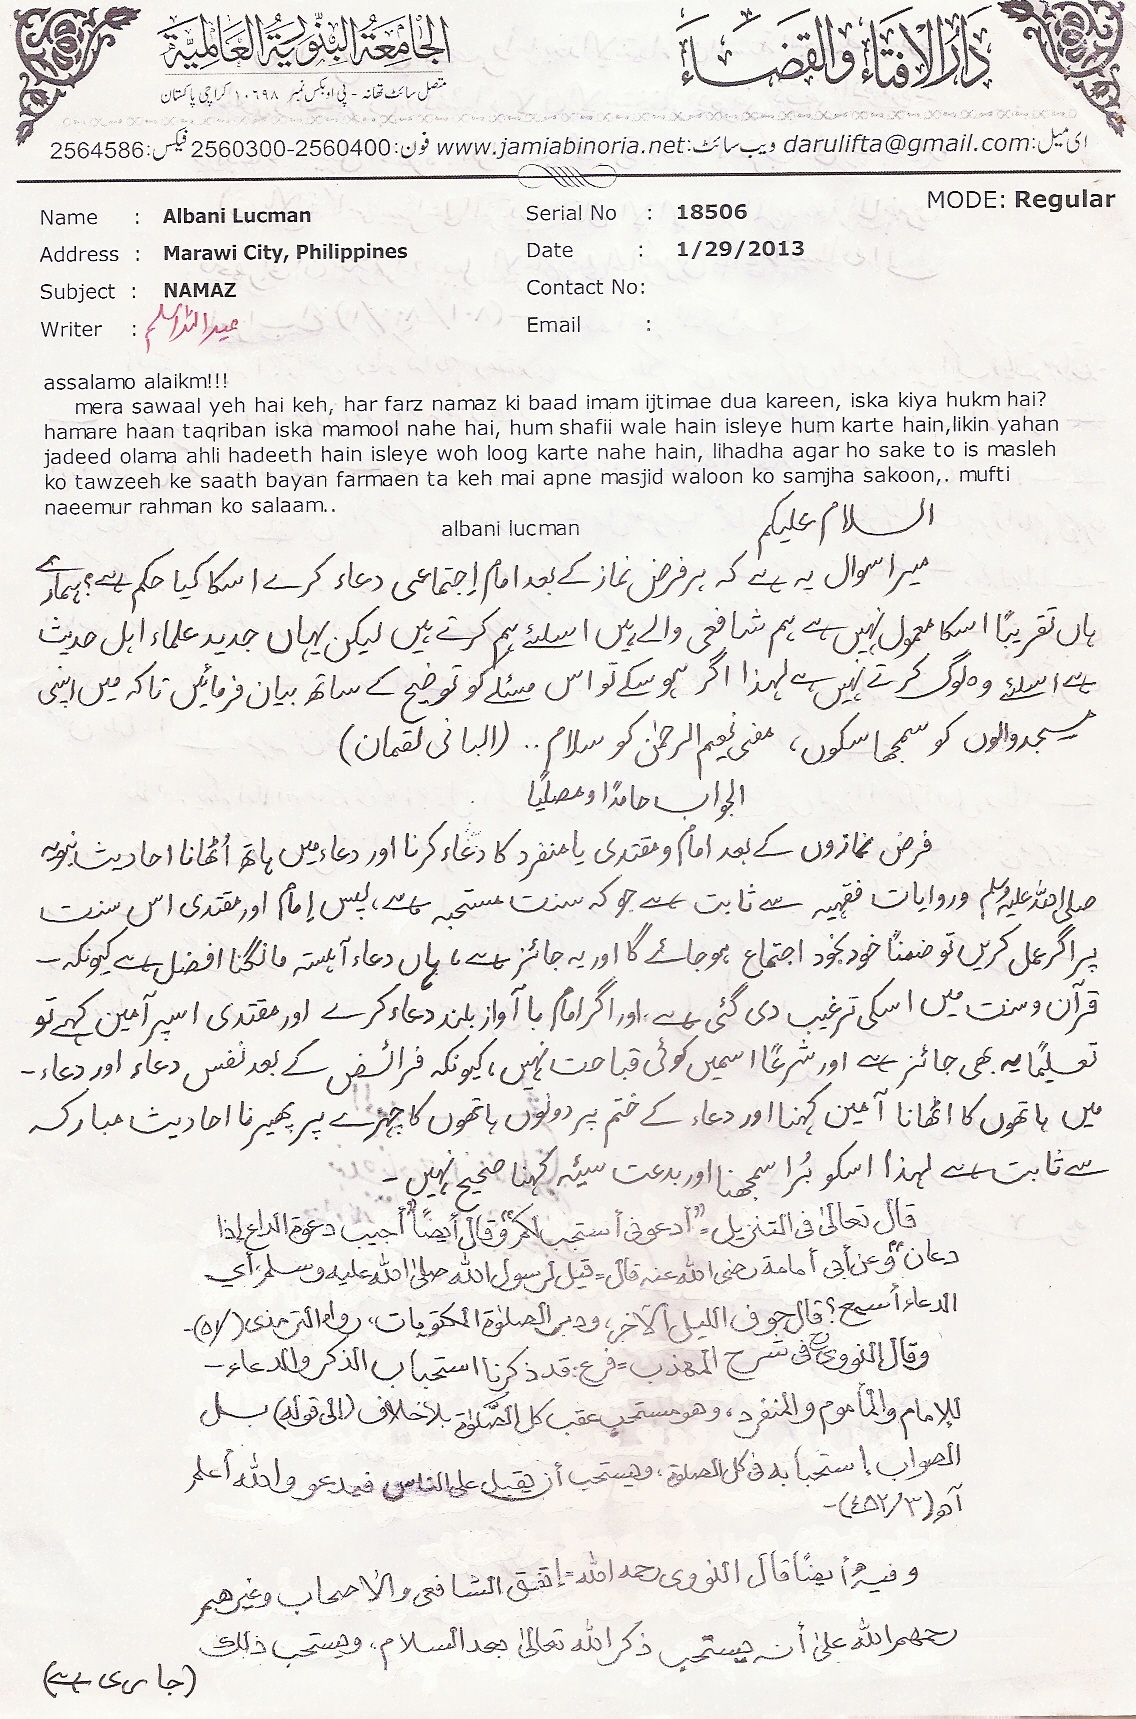 دَارُ الافتَاء والقضَاء
الجَامعَة البِنّورية العَالميَّة
متصل سائٹ تھانہ - پی او بکس نمبر ۱۰۶۹۸ کراچی پاکستان
ای میل: darulifta@gmail.com ویب سائٹ: www.jamiabinoria.net فون: 2560300-2560400 فیکس: 2564586
MODE: Regular
Name : Albani Lucman
Serial No : 18506
Address : Marawi City, Philippines
Date : 1/29/2013
Subject : NAMAZ
Contact No:
Writer :
Email :
assalamo alaikm!!!
mera sawaal yeh hai keh, har farz namaz ki baad imam ijtimae dua kareen, iska kiya hukm hai?
hamare haan taqriban iska mamool nahe hai, hum shafii wale hain isleye hum karte hain,likin yahan
jadeed olama ahli hadeeth hain isleye woh loog karte nahe hain, lihadha agar ho sake to is masleh
ko tawzeeh ke saath bayan farmaen ta keh mai apne masjid waloon ko samjha sakoon,. mufti
naeemur rahman ko salaam..
albani lucman
السلام علیکم
میرا سوال یہ ہے کہ ہر فرض نماز کے بعد امام اجتماعی دعاء کرے اسکا کیا حکم ہے؟ ہمارے
ہاں تقریبًا اسکا معمول نہیں ہے ہم شافعی والے ہیں اسلئے ہم کرتے ہیں لیکن یہاں جدید علماء اہل حدیث
ہے اسلئے وہ لوگ کرتے نہیں ہے لہذا اگر ہو سکے تو اس مسئلے کو توضیح کے ساتھ بیان فرمائیں تاکہ میں اپنی
مسجد والوں کو سمجھا سکوں، مفتی نعیم الرحمٰن کو سلام .. (البانی لقمان)
الجواب حامدًا ومصلیًا
فرض نمازوں کے بعد امام و مقتدی یا منفرد کا دعاء کرنا اور دعاء میں ہاتھ اُٹھانا احادیث نبویہ
صلی اللہ علیہ وسلم وروایات فقہیہ سے ثابت ہے جو کہ سنت مستحبہ ہے، پس امام اور مقتدی اس سنت
پر اگر عمل کریں تو ضمنًا خود بخود اجتماع ہو جائے گا اور یہ جائز ہے، ہاں دعاء آہستہ مانگنا افضل ہے کیونکہ -
قرآن و سنت میں اسکی ترغیب دی گئی ہے، اور اگر امام با آواز بلند دعاء کرے اور مقتدی اسپر آمین کہے تو
تعلیمًا یہ بھی جائز ہے اور شرعًا اسمیں کوئی قباحت نہیں، کیونکہ فرائض کے بعد نفس دعاء اور دعاء -
میں ہاتھوں کا اٹھانا آمین کہنا اور دعاء کے ختم پر دونوں ہاتھوں کا چہرے پر پھیرنا احادیث مبارکہ
سے ثابت ہے لہذا اسکو بُرا سمجھنا اور بدعت سیئہ کہنا صحیح نہیں -
قال تعالیٰ فی التنزیل = "ادعونی أستجب لکم" وقال أیضًا "أجیب دعوة الداع إذا
دعان" وعن أبی أمامة رضی اللہ عنہ قال = قیل لرسول اللہ صلی اللہ علیہ وسلم، أی
الدعاء أسمع؟ قال جوف اللیل الآخر، ودبر الصلوٰة المکتوبات، رواہ الترمذی
وقال النووی فی شرح المھذب = فرع: قد ذکرنا استحباب الذکر والدعاء -
للإمام والمأموم والمنفرد، وھو مستحب عقب کل الصلوٰة بلا خلاف (الی قولہ) بل
الصواب إستحبابہ فی کل الصلوة، ویستحب أن یقبل علی الناس فیدعو واللہ أعلم
آھ (۳/۴۵۲) -
وفیہ أیضًا قال النووی رحمہ اللہ = إتفق الشافعی والاصحاب وغیرھم
رحمھم اللہ علیٰ أنہ یستحب ذکر اللہ تعالیٰ بعد السلام، ویستحب ذلک
(جاری ہے)